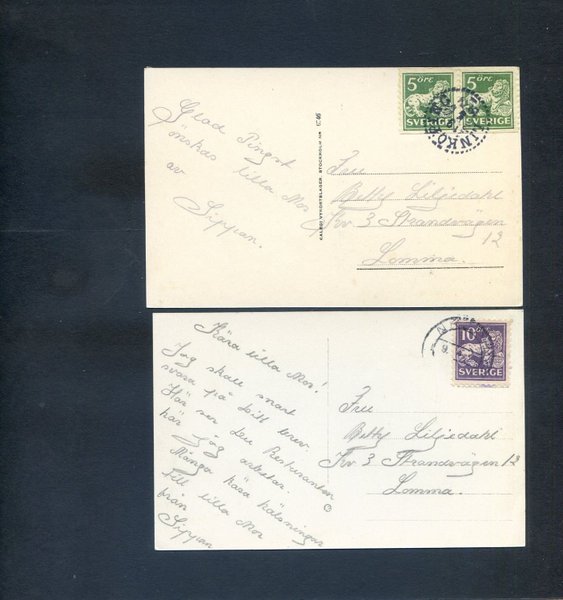 5 ÖRE 5 ÖRE
SVERIGE SVERIGE
Glad Pingst
önskas lilla Mor
av
Sippan.
KALÉNS VYKORTSLAGER STOCKHOLM
Fru
Betty Liljedahl
Kv. 3 Strandvägen
12
Lomma.
10
SVERIGE
Kära lilla Mor!
Jag skall snart
svara på ditt brev.
Här ser du Resturanten
här jag arbetar.
Många kära hälsningar
till lilla Mor
från
Sippan
Fru
Betty Liljedahl
Kv. 3 Strandvägen 12
Lomma.